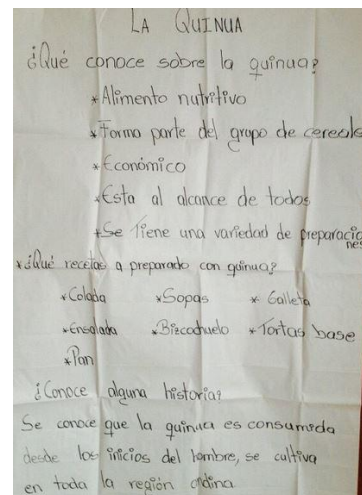 LA QUINUA
¿Qué conoce sobre la quinua?
*Alimento nutritivo
*Forma parte del grupo de cereales
*Económico
*Esta al alcance de todos
*Se Tiene una variedad de preparacio
nes
*¿Qué recetas a preparado con quinua?
*Colada *Sopas * Galleta
*Ensalada *Bizcochuelo *Tortas base
*Pan
¿Conoce alguna historia?
Se conoce que la quinua es consumida
desde los inicios del hombre, se cultiva
en toda la región andina